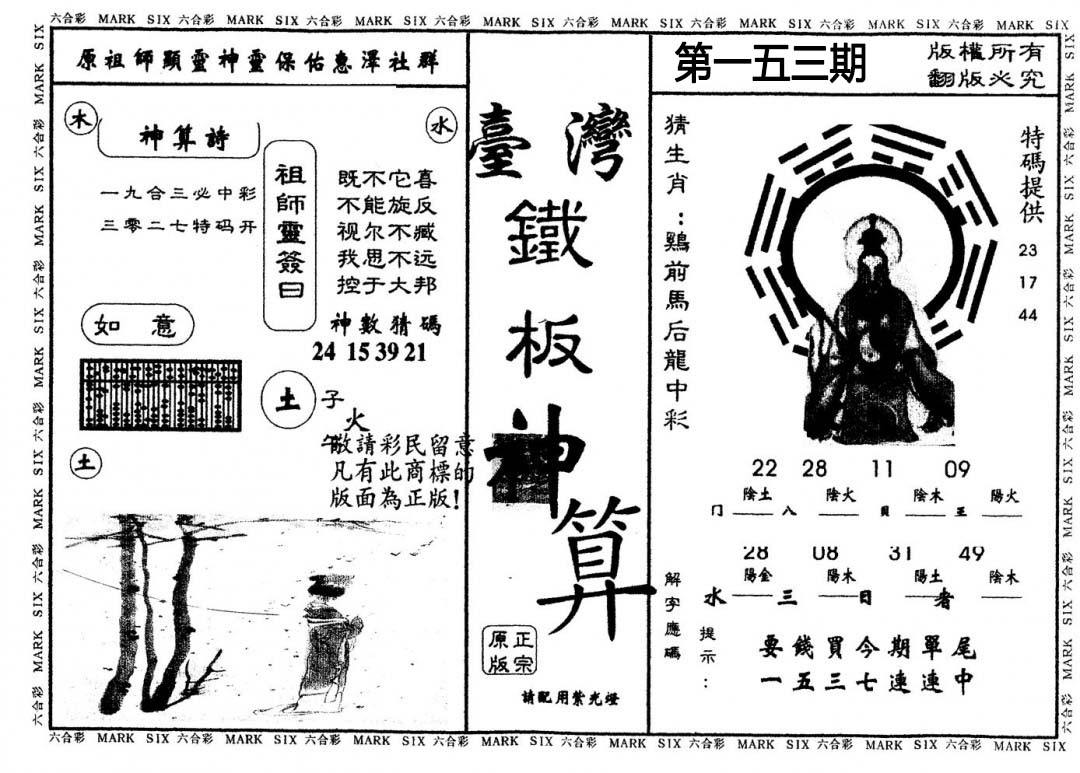 六合彩 MARK SIX 六合彩 MARK SIX 六合彩 MARK SIX 六合彩 MARK SIX 六合彩 MARK SIX 六合彩 MARK SIX 六合彩 MARK SIX 六合彩 MARK SIX
原祖師顯靈神靈保佑惠澤社群
木
水
神算詩
一九合三必中彩
三零二七特码开
祖師靈簽曰
既不它喜
不能旋反
视尔不臧
我思不远
控于大邦
神數猜碼
24 15 39 21
如意
土
子
火
土
敬請彩民留意
凡有此商標的
版面為正版!
臺灣
鐵板神算
正宗
原版
請配用紫光燈
第一五三期
版權所有
翻版必究
猜生肖:鷄前馬后龍中彩
特碼提供
23
17
44
22 28 11 09
陰土 陰火 陰木 陽火
门 八 貝 王
28 08 31 49
陽金 陽木 陽土 陰木
水 三 日 者
解字應碼
提示:
要錢買今期單尾
一五三七連連中
六合彩 MARK SIX 六合彩 MARK SIX 六合彩 MARK SIX 六合彩 MARK SIX 六合彩 MARK SIX 六合彩 MARK SIX 六合彩 MARK SIX 六合彩 MARK SIX